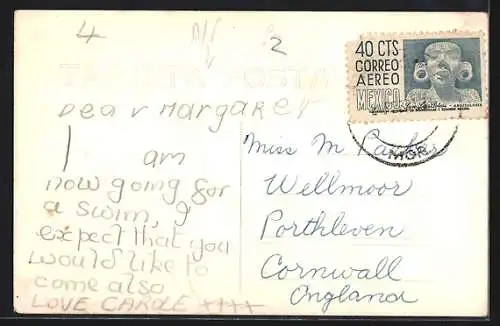 4
2
TARJETA POSTAL
40 CTS
CORREO
AEREO
MEXICO
Dear Margaret
I am
now going for
a swim, I
expect that you
would like to
come also
LOVE CAROLE ++++
MOR
Miss M Parker
Wellmoor
Porthleven
Cornwall
England